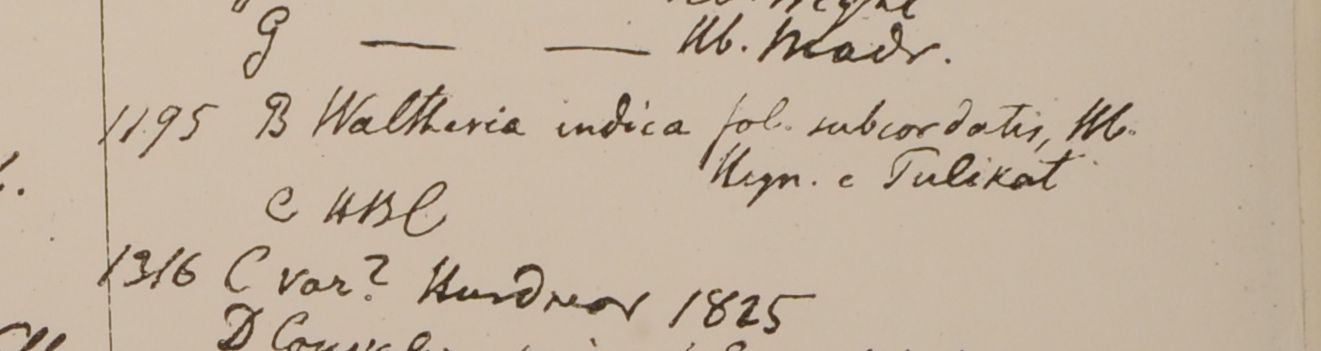 Hb. Wight
G — — Hb. Madr.
1195 B Waltheria indica fol. subcordatis, Hb.
Heyn. e Tulikat
C HBC
1316 C var? Hurdwar 1825
D